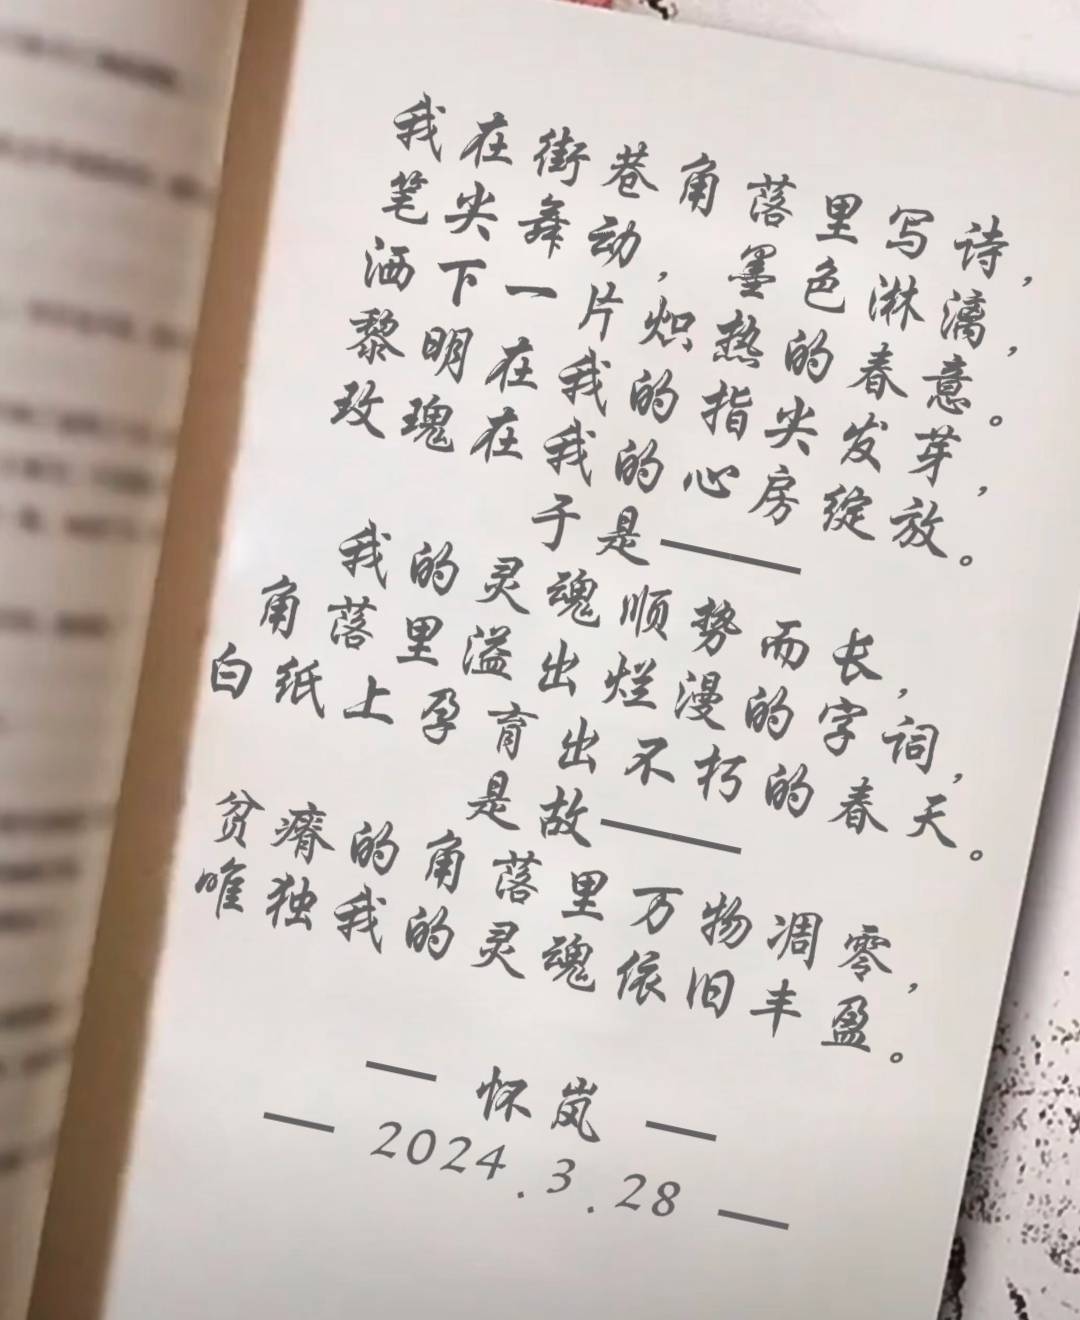 我在街巷角落里写诗，
笔尖舞动，墨色淋漓，
洒下一片炽热的春意。
黎明在我的指尖发芽，
玫瑰在我的心房绽放。
于是——
我的灵魂顺势而长，
角落里溢出烂漫的字词，
白纸上孕育出不朽的春天。
是故——
贫瘠的角落里万物凋零，
唯独我的灵魂依旧丰盈。
— 怀岚 —
— 2024.3.28 —